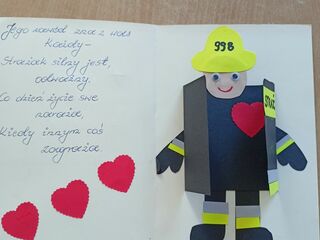 Jego zawód zna z nas
Każdy-
Strażak silny jest,
odważny.
Co dzień życie swe
naraża,
Kiedy innym coś
zagraża.
998